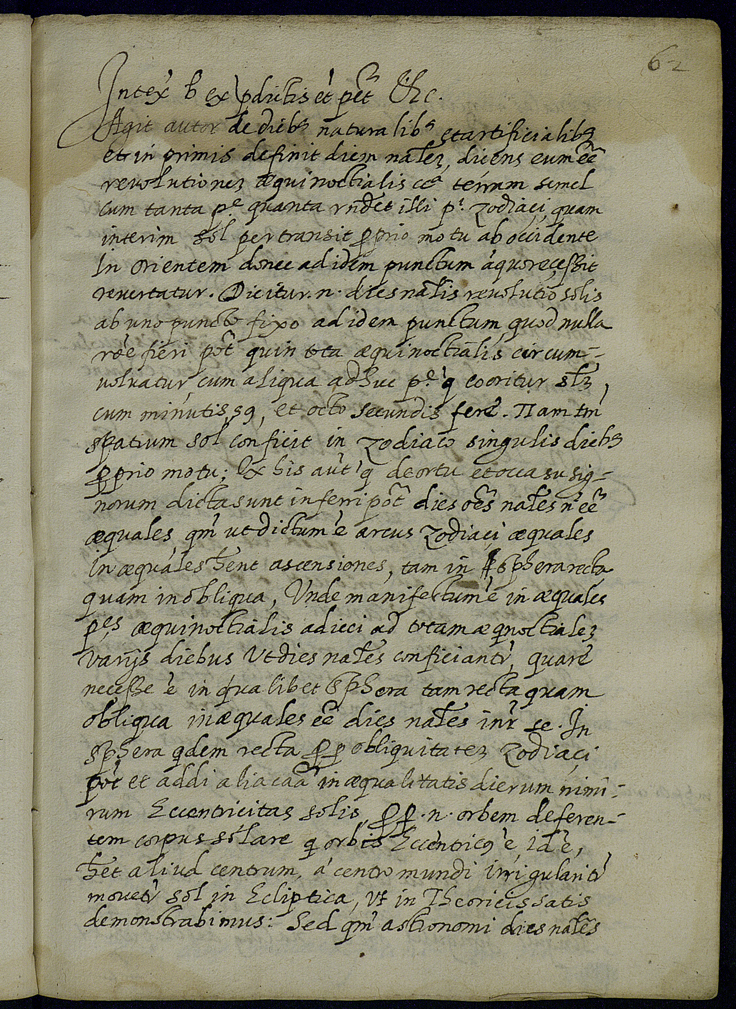 62
Intex̃ b̃ ex p̱dictis et pẽt &c.
Agit autor de dieb9 naturalib9 et artificialib9
et in primis definit diem nãlez, dicens eum eẽ
revolutionez æquinoctialis cca terram semel
cum tanta pe quanta rñdet illi pi zodiaci, quam
interim sol pertransit ꝓprio motu ab occidente
In orientem donec ad idem punctum à quo recessit
revertatur. Dicitur .n. dies nãlis revolutio solis
ab uno puncto fixo ad idem punctum, quod nulla
rõe fieri põt quin tota æquinoctialis circum-
volvatur, cum aliqua adhuc pe q̃ cooritur
cum minutis 59, et octo secundis ferè. Nam tm̃
spatium sol conficit in zodiaco singulis dieb9
ꝓprio motu; Ex his aũt q̃ de ortu et occasu sig-
norum dicta sunt inferri põt dies oẽs nãles ñ eẽ
æquales qm̃ ut dictum ẽ arcus zodiaci æquales
inæquales hẽnt ascensiones, tam in sphera recta
quam in obliqua, Unde manifestum ẽ inæquales
pes æquinoctialis adieci ad totam æqnoctialez
varijs diebus ut dies nãles conficiantr, quare
necesse ẽ in qualibet sphera tam recta quam
obliqua inæquales eẽ dies nãles intr se. In
sphera qdem recta ꝓp obliquitatez zodiaci
põt et addi alia caã inæqualitatis dierum nimi-
rum Eccentricitas solis, ꝓp .n. orbem deferen-
tem corpus solare q̃ orbis Eccentric9 ẽ, id ẽ,
hẽt aliud centrum, à centro mundi irrigulariter
movetr sol in Ecliptica, ut in Theoricis satis
demonstrabimus: Sed qm̃ astronomi dies nãles